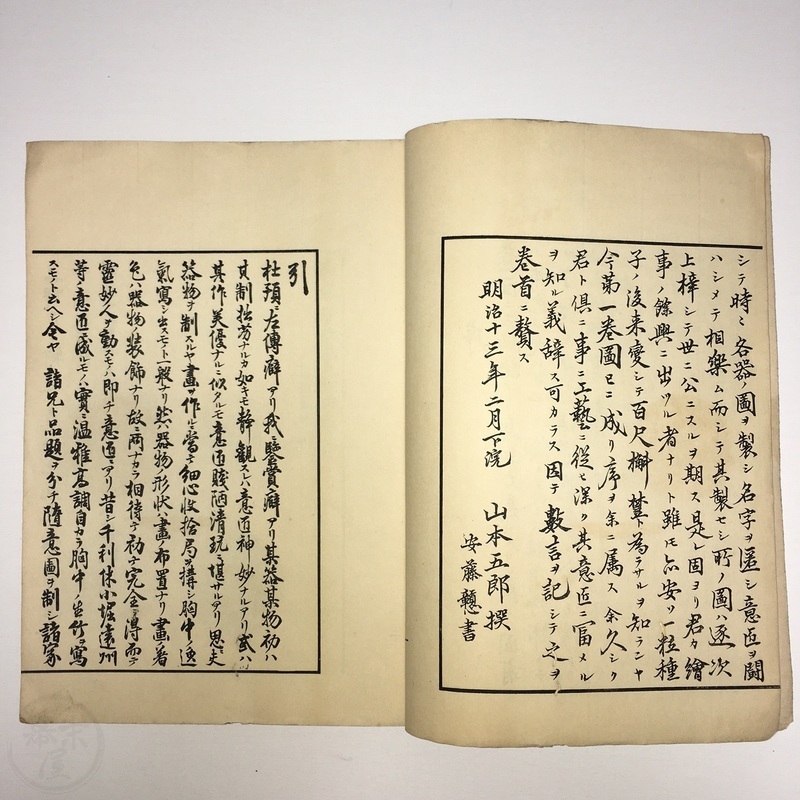 シテ時ミ各器ノ圖ヲ製シ名字ヲ匿シ意匠ヲ闘
ハシメテ相樂ム而シテ其製セシ所ノ圖ハ逐次
上梓シテ世ニ公ニスルヲ期ス是レ固ヨリ君カ繪
事ノ餘興ニ出ツル者ナリト雖モ安ソ一粒種
子ノ後来變シテ百尺樹ト為ラサルヲ知ランヤ
今第一巻圖已ニ成リ序ヲ余ニ属ス余久シク
君ト俱ニ事ニ工藝ニ從ヒ深ク其意匠ニ富メル
ヲ知ル義辞ス可カラス因テ數言ヲ記シテ之ヲ
巻首ニ贅ス
明治十三年二月下浣 山本五郎撰
安藤書
引
杜預ハ左傳癖アリ我ニ鑒賞癖アリ某器某物初ハ
其制拙劣ナルカ如キモ静観スレハ意匠神妙ナルアリ或ハ
其作美優ナルニ似タルモ意匠賤陋清玩ニ堪サルアリ思夫
器物ヲ制スルヤ畫ヲ作ルニ當テ細心收拾局ヲ構シ胸中ノ逸
氣寫シ出スモト一般ナリ然ハ器物ノ形状ハ畫ノ布置ナリ畫ノ著
色ハ器物ノ装飾ナリ故ニ両ナカラ相待テ初テ完全ヲ得而テ
靈妙人ヲ動スモノハ即チ意匠ニアリ昔シ千利休小堀遠州
等ノ意匠ニ成ルモノハ實ニ温雅高調自カラ胸中ノ生竹ヲ寫
スモノト云ヘシ今ヤ諸兄ト品題ヲ分チ隨意圖ヲ制シ諸家